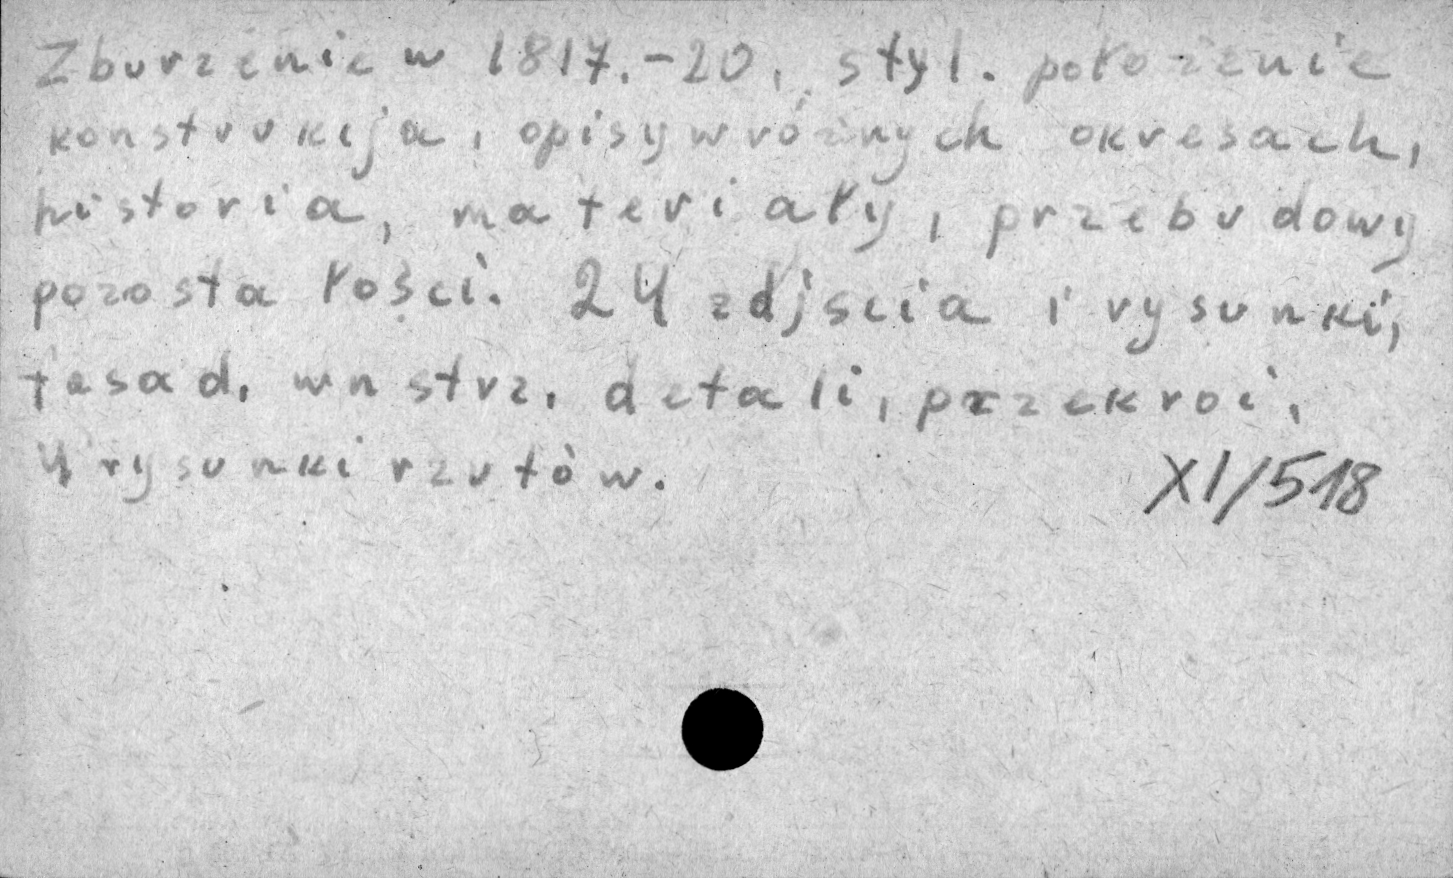 Zburzenie w 1817.-20, styl. położenie
konstrukcja, opisy w różnych okresach,
historia, materiały, przebudowy
pozostałości. 24 zdjścia i rysunki,
fasad, wnstrz, detali, przekroi,
4 rysunki rzutów.
XI/518